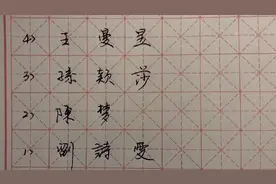 4) 王曼昱
3) 孫颖莎
2) 陳梦
1) 劉詩雯